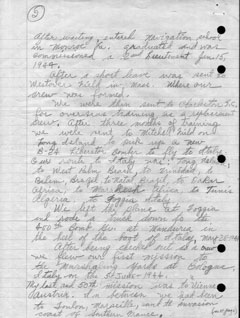 5
After waiting entered navigation school
in Monroe La., graduated and was
commissioned a 2nd Lieutenant Jan 15,
1944.
After a short leave was sent to
Westover Field in Mass. where our
crew was formed.
We were then sent to Charleston S.C.
for overseas training as a replacement
crew. After three months of training
we were sent to Mitchell Field on
Long Island to pick up a new
B-24 Liberator bomber to fly to Italy.
Our route to Italy was: Long Island
to West Palm Beach, to Trinidad, to
Belem, Brazil to Natal Brazil to Dakar
Africa, to Marrakech Africa, to Tunis
Algeria to Foggia Italy.
We left the plane at Foggia
and rode a truck down to the
450th Bomb Gp. at Manduria in
the heel of the boot of Italy,
After being checked out
we flew our first mission to
the Marshaling Yards at Bologna,
Italy on the
My last and 50th mission was to Vienna
Austria. In between we got
to London, Marseille, and the invasion
coast of Southern France.